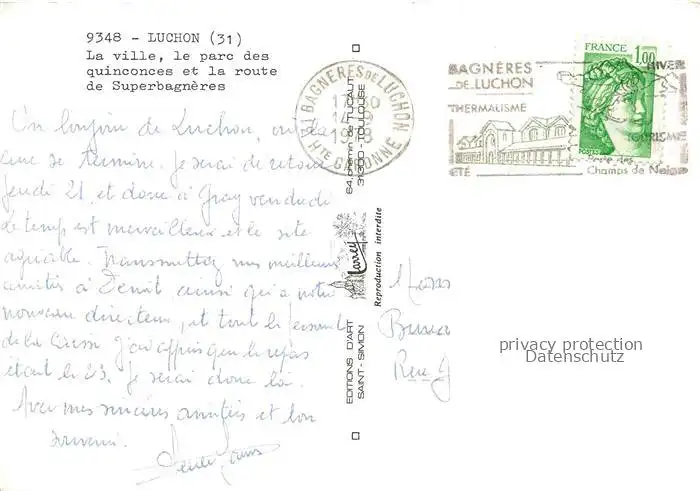 9348 - LUCHON (31)
La ville, le parc des
quinconces et la route
de Superbagnères
Un bonjour de Luchon, où la
cure se termine. Je serai de retour
jeudi 21, et donc à Gray vendredi
Le temps est merveilleux et le site
agréable. Transmettez mes meilleures
amitiés à Benoit ainsi qu'à notre
nouveau directeur, et tout le personnel
de la Caisse J'ai appris que le repas
était le 23. Je serai donc là.
Avec mes sincères amitiés et bon
souvenir.
31 BAGNERES DE LUCHON
HTE GARONNE
BAGNÈRES
DE LUCHON
THERMALISME
ÉTÉ
HIVER
TOURISME
Champs de Neige
FRANCE
1,00
POSTES
64, chemin de TUCAUT
31300 - TOULOUSE
Larrey
Reproduction interdite
EDITIONS D'ART
SAINT - SIMON
Rue
privacy protection
Datenschutz